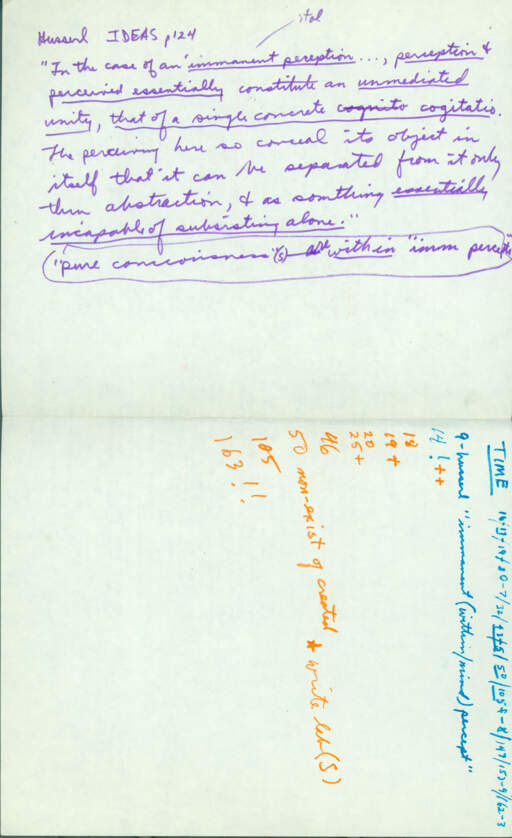 ital
Husserl IDEAS p124
"In the case of an immanent perception..., perception &
perceived essentially constitute an unmediated
unity, that of a single concrete cognito cogitatio.
The perceiving here so conceal its object in
itself that it can be separated from it only
thru abstraction, & as somthing essentially
incapable of subsisting alone."
"pure consciousness"(s) are within "imm percept"
TIME
9-husserl "immanent (within/mind) percept"
14!++
18
19+
20
25+
46
50 non-exist of created ★ write let(s)
105
163!!